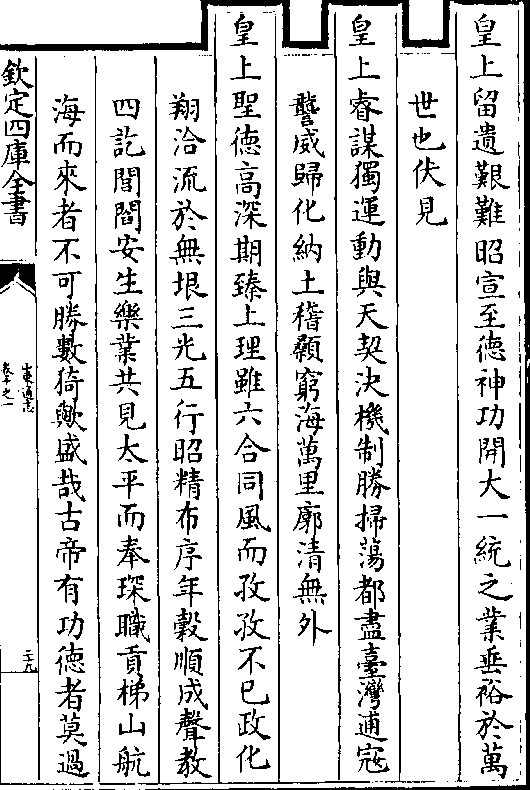 皇上留遺艱難昭宣至德神功開大一統之業垂裕於萬
世也伏見
皇上睿謀獨運動與天契決機制勝掃蕩都盡臺灣逋寇
讋威歸化納土稽顙窮海萬里廓清無外
皇上聖德高深期臻上理雖六合同風而孜孜不已政化
翔洽流於無垠三光五行昭精布序年穀順成聲教
四訖閭閻安生樂業共見太平而奉琛職貢梯山航
海而來者不可勝數猗歟盛哉古帝有功德者莫過
欽定四庫全書
山東通志
卷十之一
三九